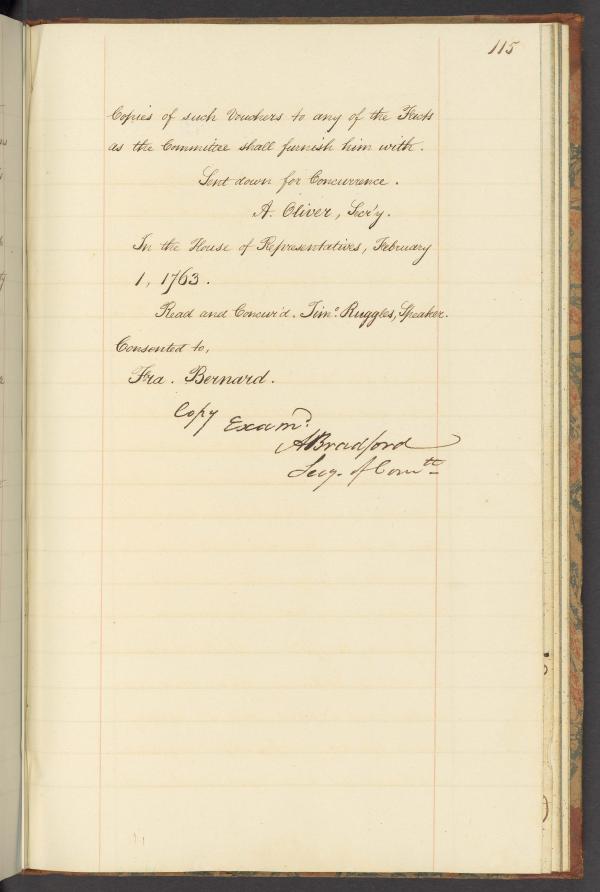 115
Copies of such Vouchers to any of the Facts
as the Committee shall furnish him with.
Sent down for Concurrence.
A. Oliver, Secr'y.
In the House of Representatives, February
1, 1763.
Read and Concur'd. Timo. Ruggles, Speaker.
Consented to,
Fra. Bernard.
Copy Examd.
A Bradford
Secy. of Comth